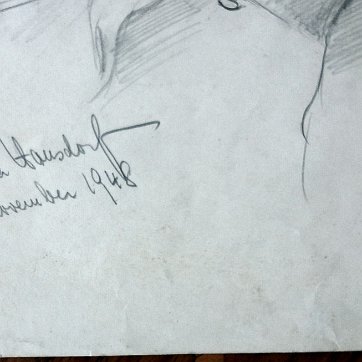 a Hausdorff
ovember 1948